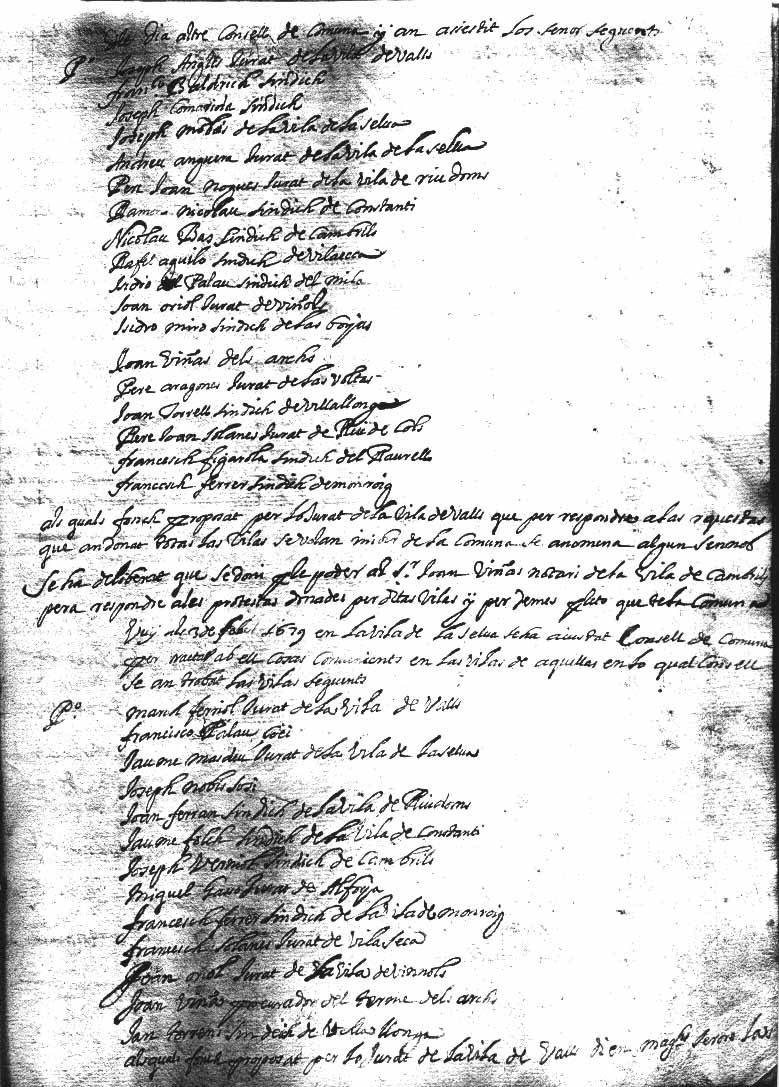 dit dia altre Consell de Comuna y an asiestit los senor seguents
Po Joseph Jurat de la vila de Valls
Franco Baldrich sindich
Joseph Comarida sindich
Joseph mollas de la vila de la selva
Andreu anguera Jurat de la vila de la selva
Pere Joan nogues Jurat de la vila de riudoms
Ramon nicolau sindich de Constanti
Nicolau Bas sindich de Cambrils
Rafel aquilo sindich de vilaseca
Isidro Palau sindich del mila
Joan oriol Jurat de viñols
Isidro miro sindich de las borjas
Joan viñas dels archs
Pere aragones Jurat de las voltas
Joan Torrell sindich de villallonga
Pere Joan solanes Jurat de Riu de Cols
francesch figarola sindich del Raurell
francesch ferrer sindich de monroig
als quals fonch proposat per lo Jurat de la vila de valls que per respondre a las requestas
que an donat totas las vilas se volan de la Comuna se anomena algun
se ha deliberat que se doni ple poder al Sr Joan viñas notari de la vila de Cambrils
pera respondre a les protestas donades per ditas vilas y per demes plets que te la Comuna
Vuy als 3 de febrer 1679 en la vila de la selva seha aiustat Consell de Comuna
per tractar ab ell cosas Convenients en las vilas de aquellas en lo qual Consell
se an trobat las vilas seguents
Po march ferriol Jurat de la vila de Valls
francisco Palau
Jaume masdeu Jurat de la vila de la selva
Joseph
Joan ferran sindich de la vila de Riudoms
Jaume folch sindich de la vila de Constanti
Joseph sindich de Cambrils
Miquel Jurat de Alforja
francesch ferrer sindich de la vila de monroig
francesch solanes Jurat de vila seca
Joan oriol Jurat de la vila de vinnols
Joan viñas procurador del terme dels archs
Jan torrens sindich de vilallonga
als quals fonch proposat per lo Jurat de la vila de Valls dien magchs senors